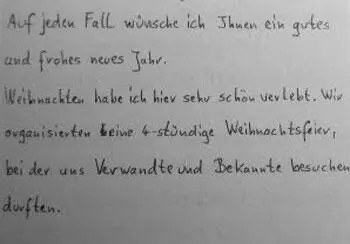 Auf jeden Fall wünsche ich Ihnen ein gutes
und frohes neues Jahr.
Weihnachten habe ich hier sehr schön verlebt. Wir
organisierten eine 4-stündige Weihnachtsfeier,
bei der uns Verwandte und Bekannte besuchen
durften.